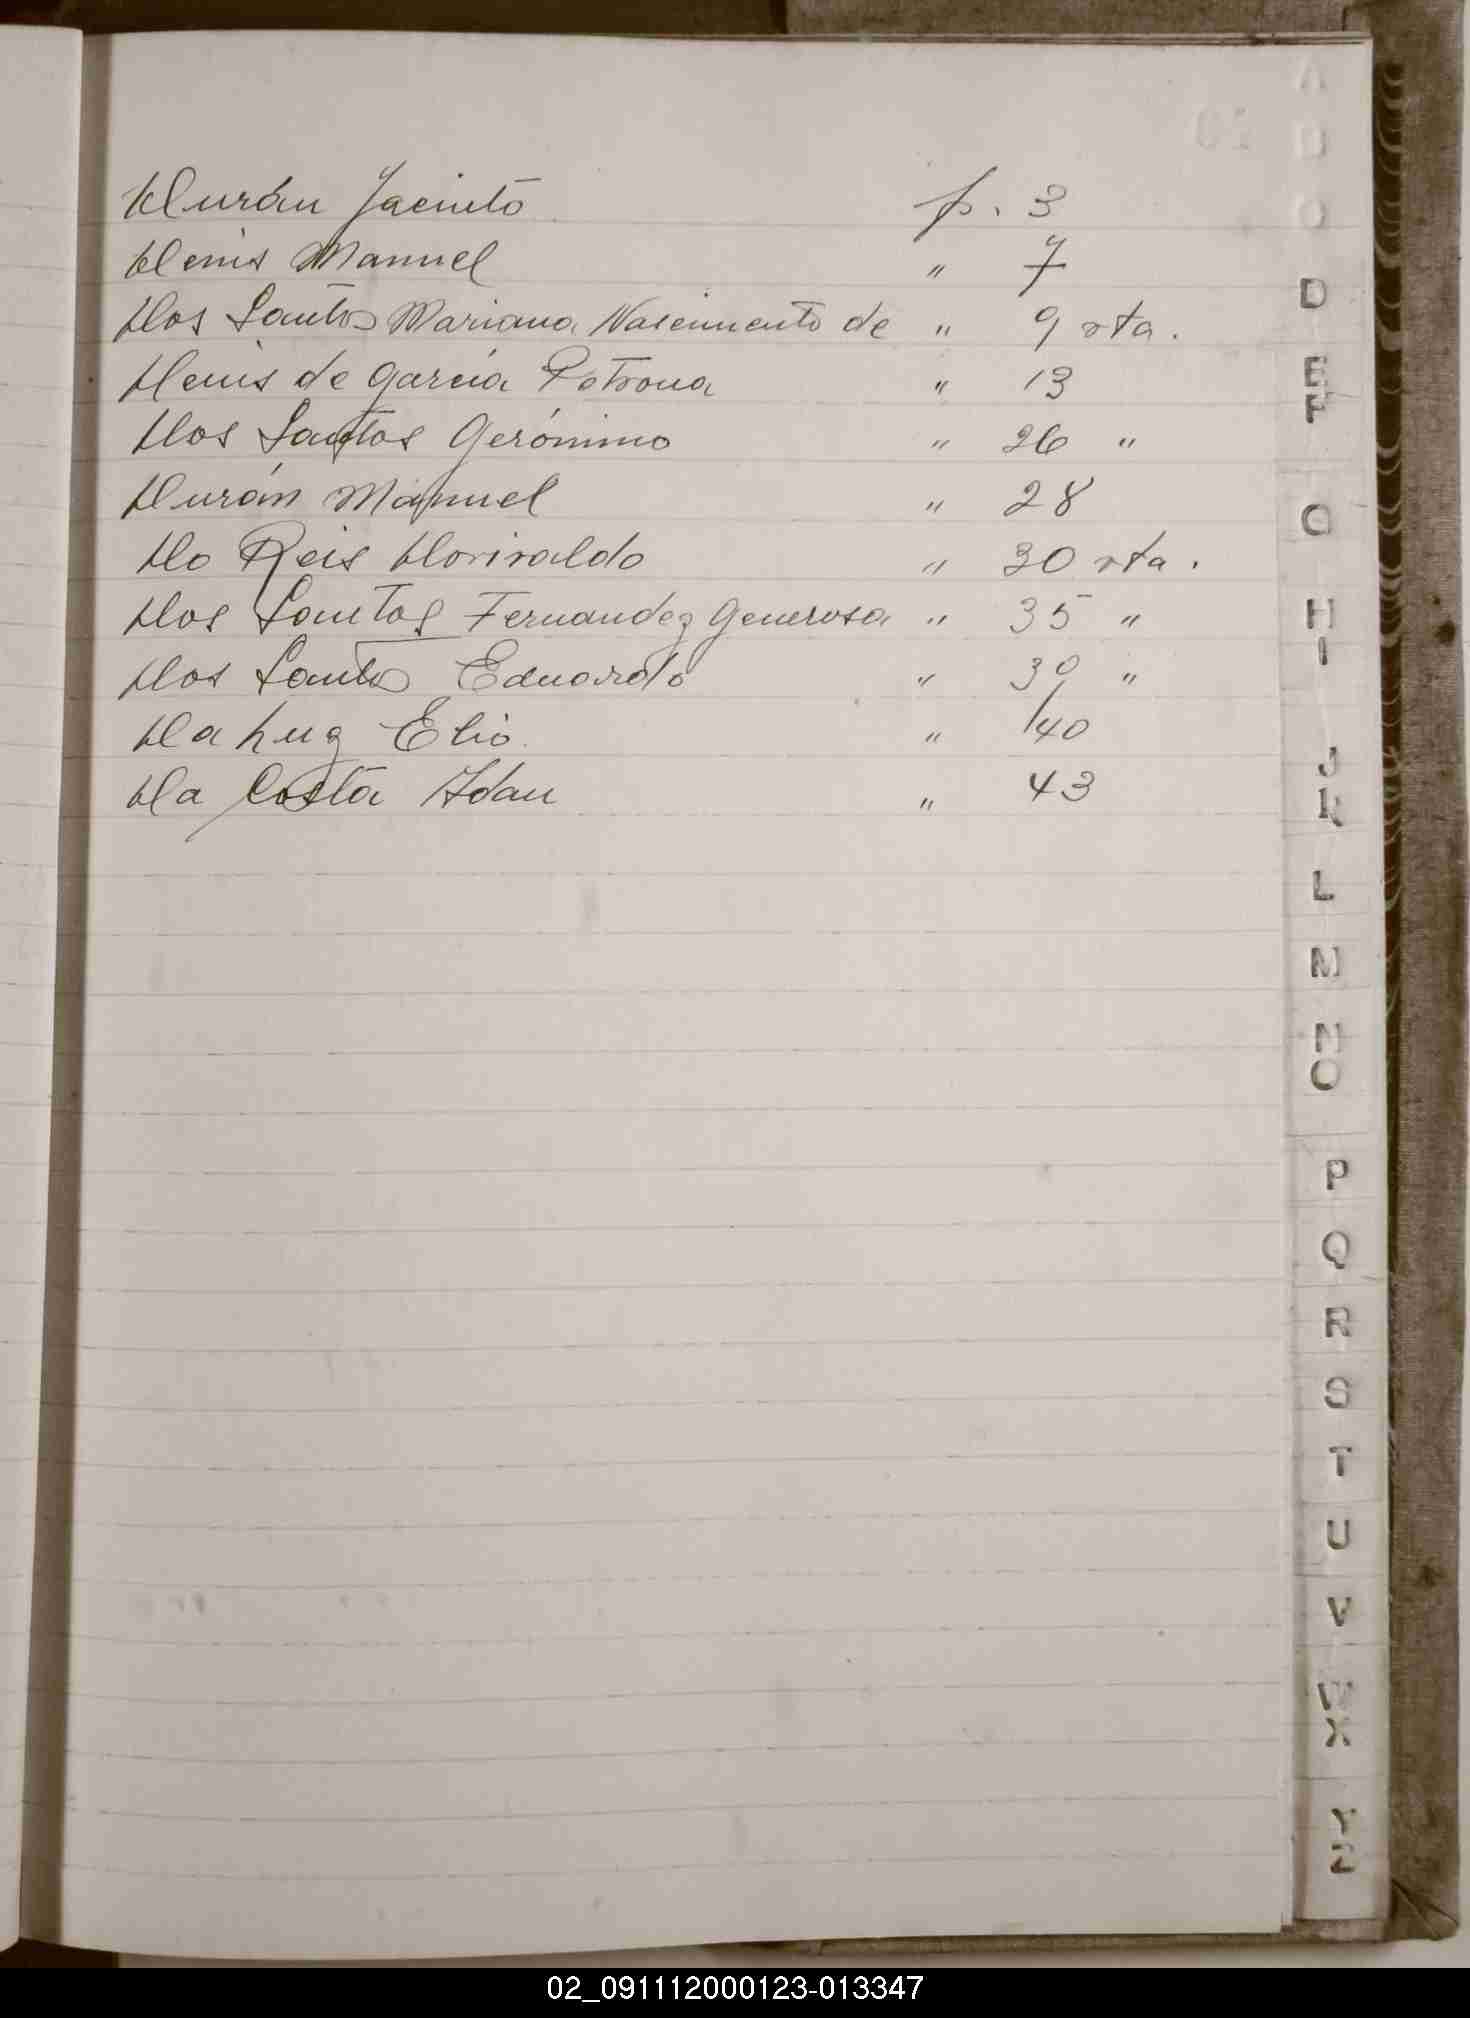 Durán Jacinto p. 3
Denis Manuel " 7
Dos Santos Mariana Nascimento de " 9 vta.
Denis de García Petrona " 13
Dos Santos Gerónimo " 26 "
Durán Manuel " 28
Do Reis Dorivaldo " 30 vta.
Dos Santos Fernandez Generosa " 35 "
Dos Santos Eduardo " 30 "
Da Luz Elio " 40
Da Costa Adan " 43
D
E
F
G
H
I
J
K
L
M
N
O
P
Q
R
S
T
U
V
W
X
Y
Z
02_091112000123-013347